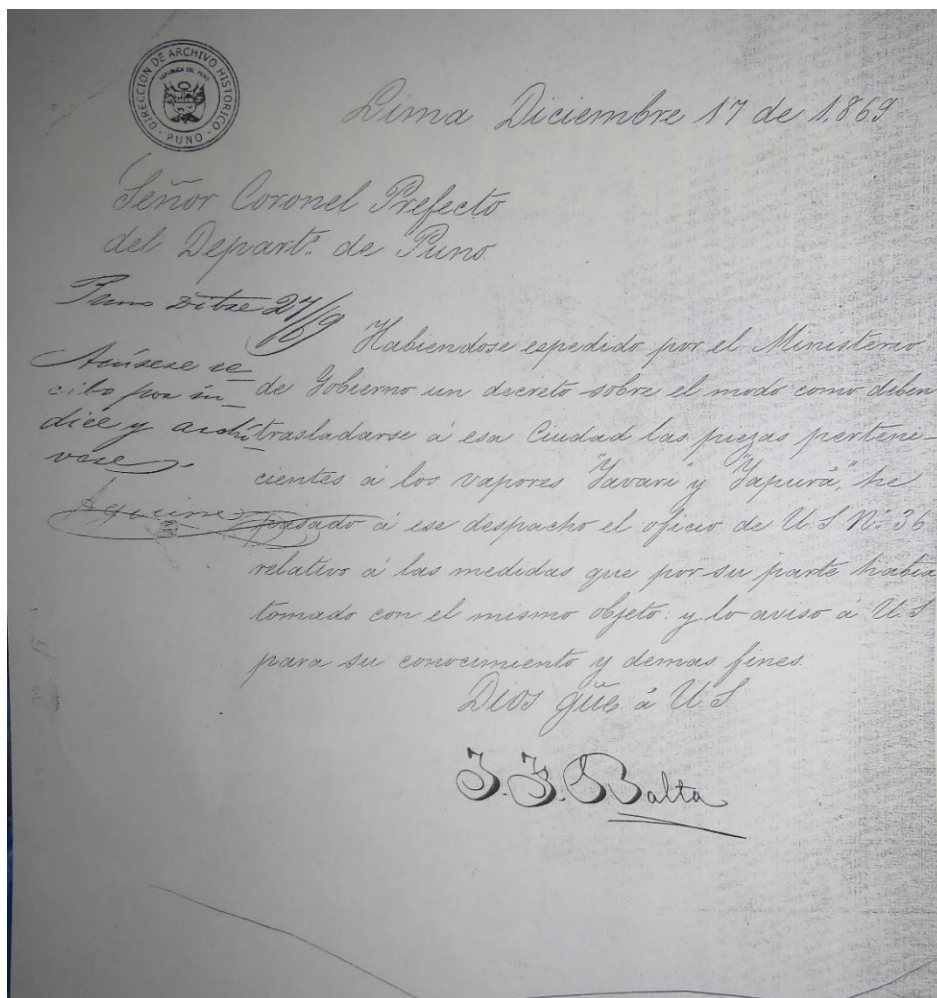 DIRECCIÓN DE ARCHIVO HISTÓRICO
REPUBLICA DEL PERÚ
- PUNO -
Lima Diciembre 17 de 1.869
Señor Coronel Prefecto
del Depart.º de Puno.
Puno Dibre 27/69
Acúsese re_
cibo por ín_
dice y archí_
vese.
Habiendose espedido por el Ministerio
de Gobierno un decreto sobre el modo como deben
trasladarse á esa Ciudad las piezas pertene-
cientes á los vapores "Yavarí" y "Yapurá," he
pasado á ese despacho el oficio de U. S Nº 36
relativo á las medidas que por su parte habia
tomado con el mismo objeto: y lo aviso á U. S
para su conocimiento y demas fines.
Dios güe á U. S
J. F. Balta